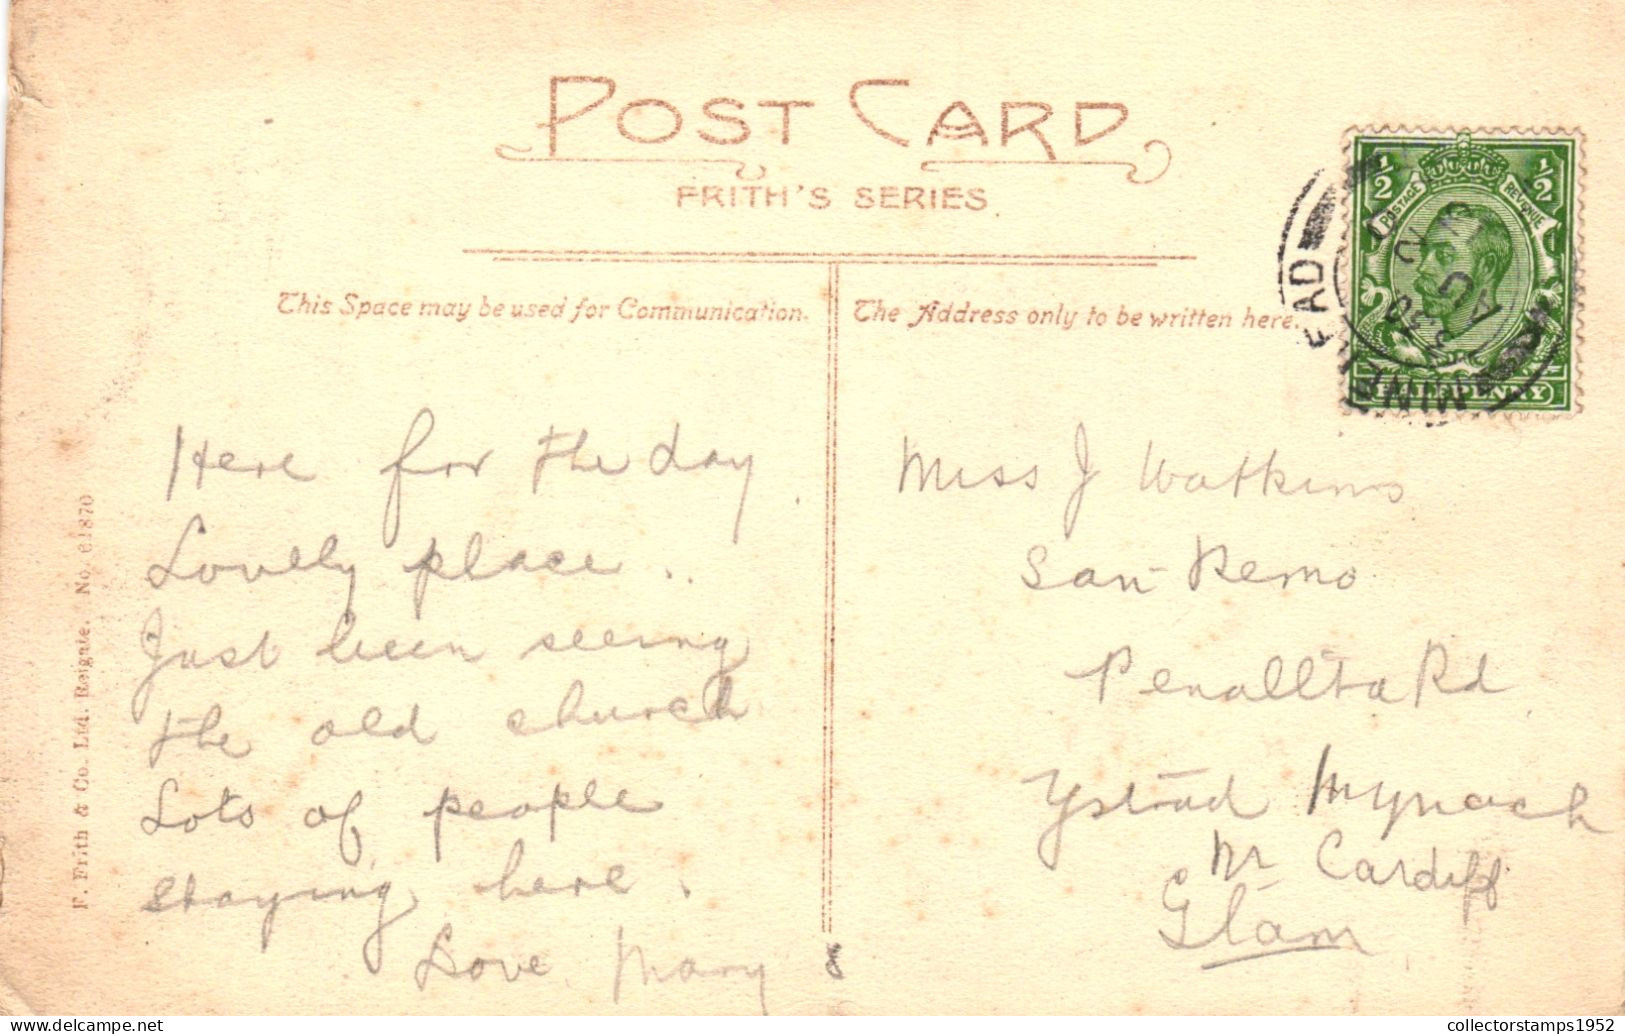 POST CARD
FRITH'S SERIES
This Space may be used for Communication.
The Address only to be written here.
½ ½
POSTAGE REVENUE
HALFPENNY
MINEHEAD
Here for the day
Lovely place ..
Just been seeing
the old church
Lots of people
staying here.
Love Mary
8
Miss J Watkins
San Remo
Penallta Rd
Ystrad Mynach
Nr Cardiff
Glam
F. Frith & Co. Ltd. Reigate. No. 61870
collectorstamps1952